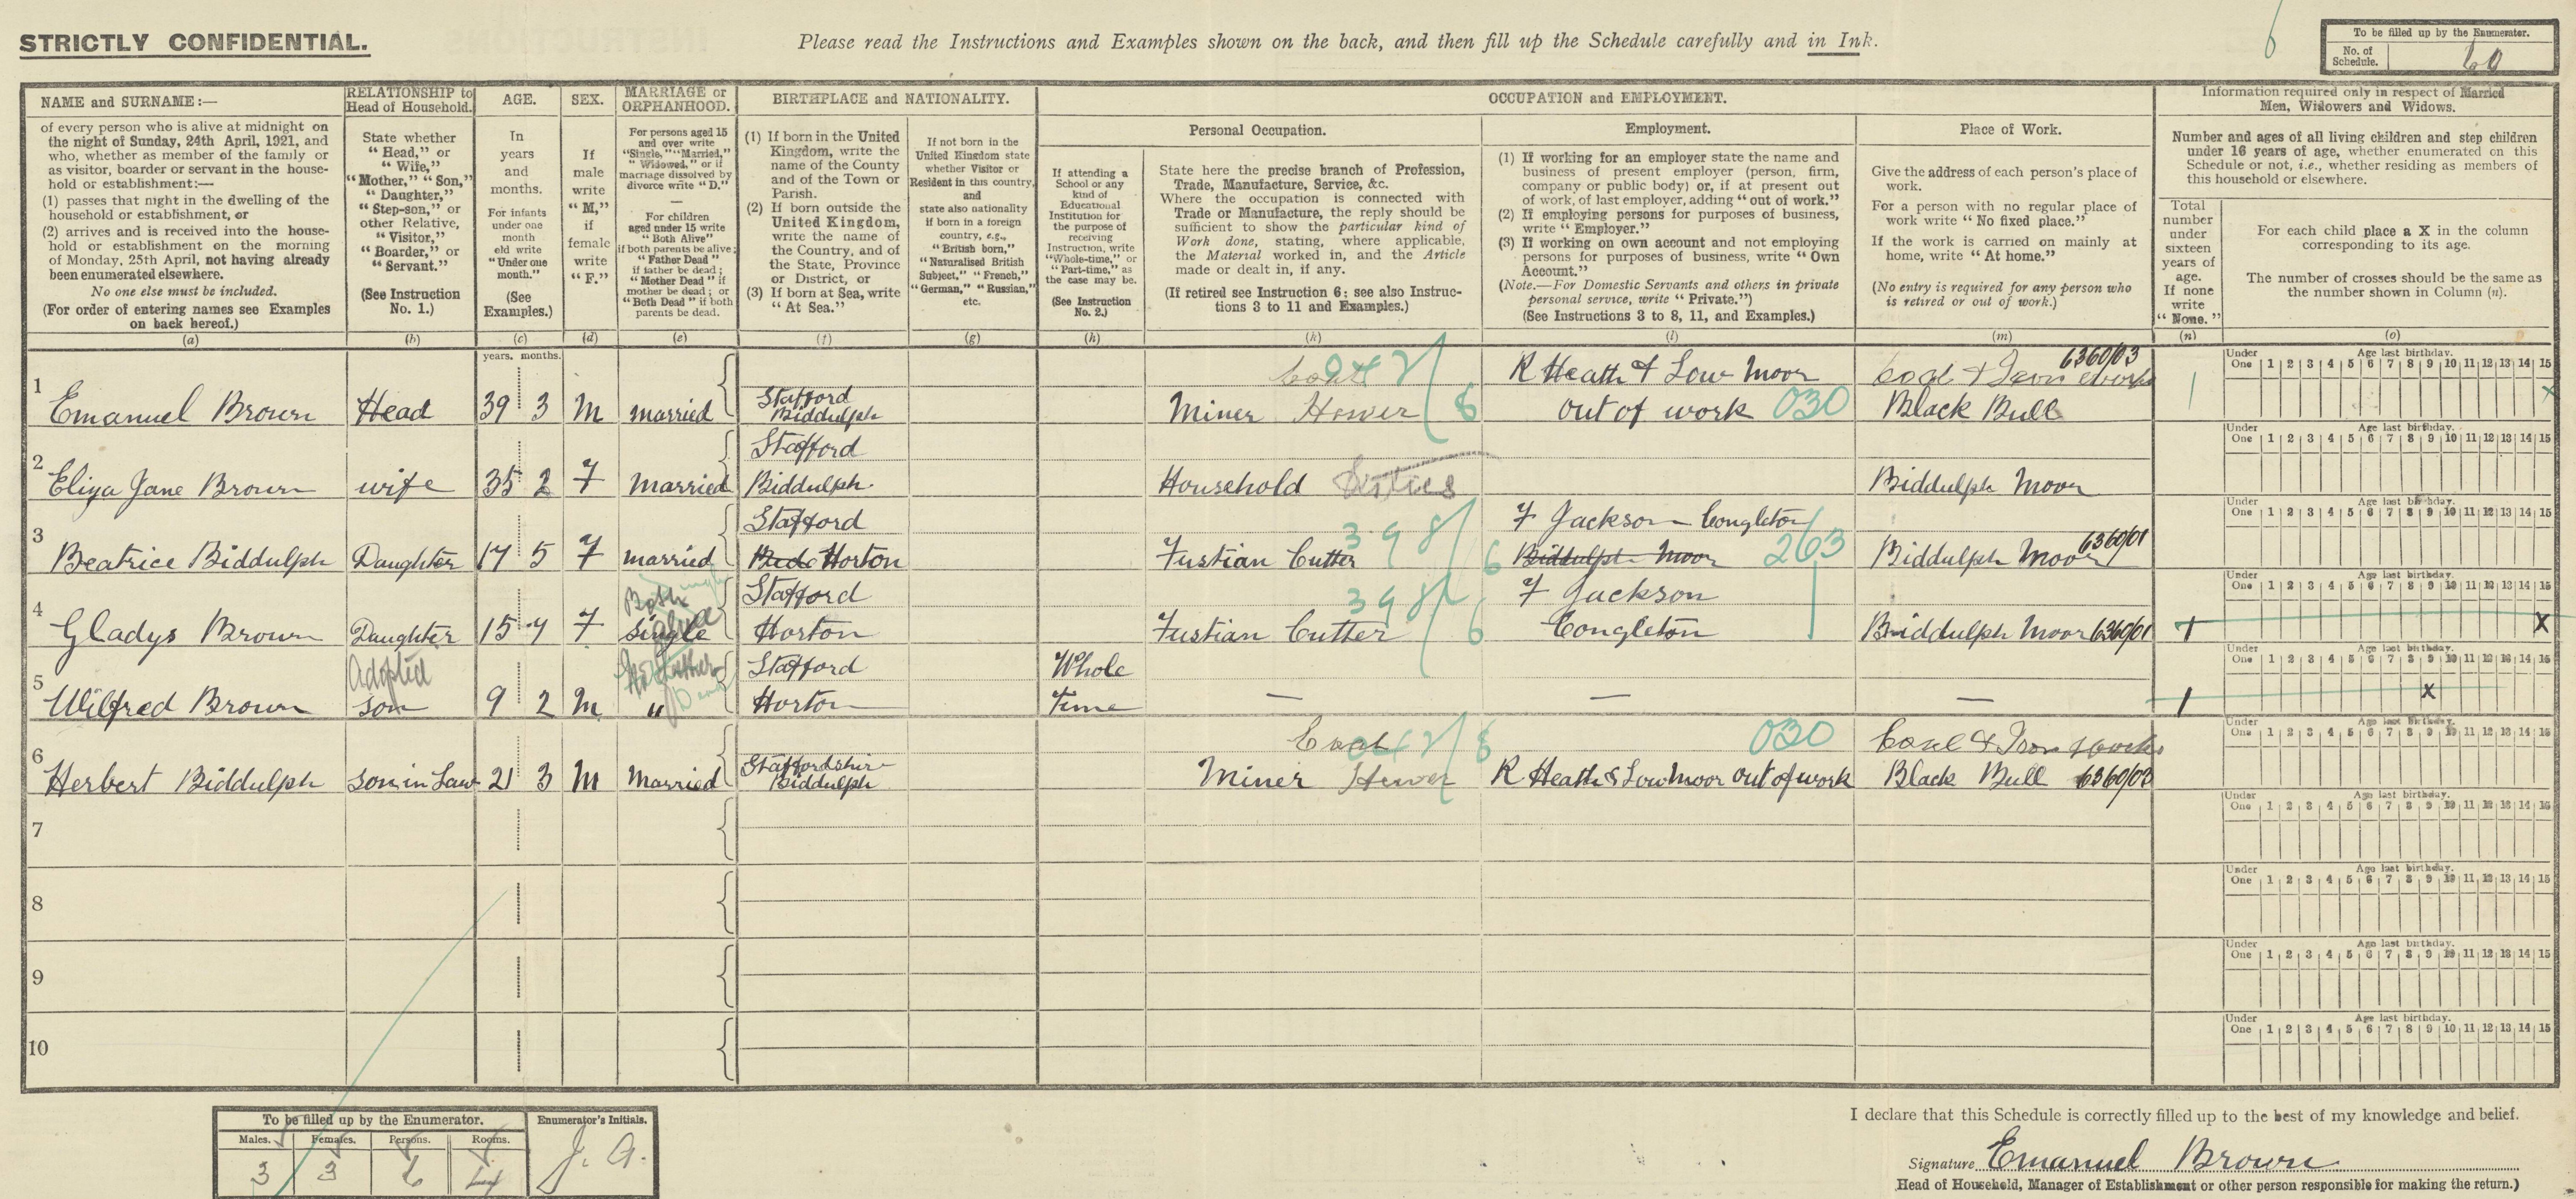 STRICTLY CONFIDENTIAL.
Please read the Instructions and Examples shown on the back, and then fill up the Schedule carefully and in Ink.
6
To be filled up by the Enumerator.
No. of Schedule. 60
NAME and SURNAME:—
of every person who is alive at midnight on
the night of Sunday, 24th April, 1921, and
who, whether as member of the family or
as visitor, boarder or servant in the house-
hold or establishment:—
(1) passes that night in the dwelling of the
household or establishment, or
(2) arrives and is received into the house-
hold or establishment on the morning
of Monday, 25th April, not having already
been enumerated elsewhere.
No one else must be included.
(For order of entering names see Examples
on back hereof.)
(a)
RELATIONSHIP to
Head of Household.
State whether
"Head," or
"Wife,"
"Mother," "Son,"
"Daughter,"
"Step-son," or
other Relative,
"Visitor,"
"Boarder," or
"Servant."
(See Instruction
No. 1.)
(b)
AGE.
In
years
and
months.
For infants
under one
month
old write
"Under one
month."
(See
Examples.)
(c)
SEX.
If
male
write
"M,"
if
female
write
"F."
(d)
MARRIAGE or
ORPHANHOOD.
For persons aged 15
and over write
"Single," "Married,"
"Widowed," or if
marriage dissolved by
divorce write "D."
—
For children
aged under 15 write
"Both Alive"
if both parents be alive;
"Father Dead"
if father be dead;
"Mother Dead" if
mother be dead; or
"Both Dead" if both
parents be dead.
(e)
BIRTHPLACE and NATIONALITY.
(1) If born in the United
Kingdom, write the
name of the County
and of the Town or
Parish.
(2) If born outside the
United Kingdom,
write the name of
the Country, and of
the State, Province
or District, or
(3) If born at Sea, write
"At Sea."
(f)
If not born in the
United Kingdom state
whether Visitor or
Resident in this country,
and
state also nationality
if born in a foreign
country, e.g.,
"British born,"
"Naturalised British
Subject," "French,"
"German," "Russian,"
etc.
(g)
OCCUPATION and EMPLOYMENT.
If attending a
School or any
kind of
Educational
Institution for
the purpose of
receiving
Instruction, write
"Whole-time," or
"Part-time," as
the case may be.
(See Instruction
No. 2.)
(h)
Personal Occupation.
State here the precise branch of Profession,
Trade, Manufacture, Service, &c.
Where the occupation is connected with
Trade or Manufacture, the reply should be
sufficient to show the particular kind of
Work done, stating, where applicable,
the Material worked in, and the Article
made or dealt in, if any.
(If retired see Instruction 6; see also Instruc-
tions 3 to 11 and Examples.)
(k)
Employment.
(1) If working for an employer state the name and
business of present employer (person, firm,
company or public body) or, if at present out
of work, of last employer, adding "out of work."
(2) If employing persons for purposes of business,
write "Employer."
(3) If working on own account and not employing
persons for purposes of business, write "Own
Account."
(Note.—For Domestic Servants and others in private
personal service, write "Private.")
(See Instructions 3 to 8, 11, and Examples.)
(l)
Place of Work.
Give the address of each person's place of
work.
For a person with no regular place of
work write "No fixed place."
If the work is carried on mainly at
home, write "At home."
(No entry is required for any person who
is retired or out of work.)
(m)
Information required only in respect of Married
Men, Widowers and Widows.
Number and ages of all living children and step children
under 16 years of age, whether enumerated on this
Schedule or not, i.e., whether residing as members of
this household or elsewhere.
Total
number
under
sixteen
years of
age.
If none
write
"None."
(n)
For each child place a X in the column
corresponding to its age.
The number of crosses should be the same as
the number shown in Column (n).
(o)
years. months.
Under One Age last birthday. 1 2 3 4 5 6 7 8 9 10 11 12 13 14 15
Coal R Heath & Low Moor Coal & Iron Works 6360/03
1 Emanuel Brown Head 39 3 M Married Stafford Biddulph Miner Hewer 6 out of work 030 Black Bull 1 X
Under One Age last birthday. 1 2 3 4 5 6 7 8 9 10 11 12 13 14 15
Stafford
2 Eliza Jane Brown wife 35 2 F Married Biddulph. Household Duties Biddulph Moor
Under One Age last birthday. 1 2 3 4 5 6 7 8 9 10 11 12 13 14 15
Stafford 398 F Jackson Congleton 6360/01
3 Beatrice Biddulph Daughter 17 5 F Married Horton Fustian Cutter 6 Biddulph Moor 263 Biddulph Moor
Under One Age last birthday. 1 2 3 4 5 6 7 8 9 10 11 12 13 14 15
Both alive Stafford 398 F Jackson
4 Gladys Brown Daughter 15 7 F Single Horton Fustian Cutter 6 Congleton Biddulph Moor 6360/01 1 X
Under One Age last birthday. 1 2 3 4 5 6 7 8 9 10 11 12 13 14 15
Adopted Stafford Whole
5 Wilfred Brown son 9 2 M " Horton Time — — — 1 X
Under One Age last birthday. 1 2 3 4 5 6 7 8 9 10 11 12 13 14 15
Coal 042 6 030 Coal & Iron Works
6 Herbert Biddulph Son in Law 21 3 M Married Staffordshire Biddulph Miner Hewer R Heath & Low Moor out of work Black Bull 6360/03
Under One Age last birthday. 1 2 3 4 5 6 7 8 9 10 11 12 13 14 15
7
Under One Age last birthday. 1 2 3 4 5 6 7 8 9 10 11 12 13 14 15
8
Under One Age last birthday. 1 2 3 4 5 6 7 8 9 10 11 12 13 14 15
9
Under One Age last birthday. 1 2 3 4 5 6 7 8 9 10 11 12 13 14 15
10
To be filled up by the Enumerator.
Males. Females. Persons. Rooms.
3 3 6 4
Enumerator's Initials.
J. A.
I declare that this Schedule is correctly filled up to the best of my knowledge and belief.
Signature Emanuel Brown
Head of Household, Manager of Establishment or other person responsible for making the return.)